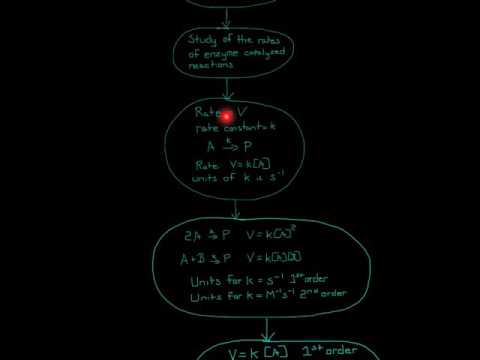 Study of the rates
of enzyme catalyzed
reactions
Rate V
rate constant = k
A k→ P
Rate V = k[A]
units of k is s⁻¹
2A → P V = k[A]²
A + B → P V = k[A]
Units for k = s⁻¹ 1st order
Units for k = M⁻¹s⁻¹ 2nd order
V = k [A] 1st order